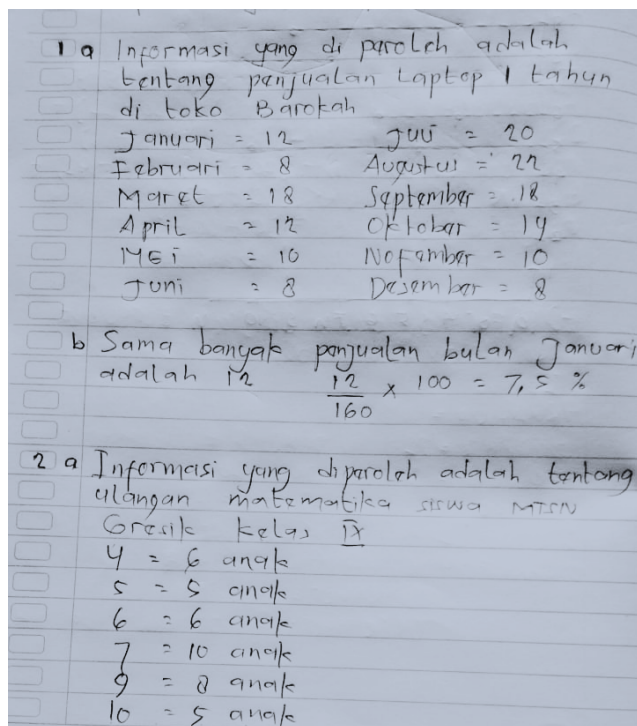 1 a Informasi yang di peroleh adalah
tentang penjualan Laptop 1 tahun
di toko Barokah
Januari = 12 Juli = 20
Februari = 8 Augustus = 22
Maret = 18 September = 18
April = 12 Oktober = 14
MEi = 10 Nofember = 10
Juni = 8 Desember = 8
b Sama banyak penjualan bulan Januari
adalah 12 12/160 x 100 = 7,5 %
2 a Informasi yang diperoleh adalah tentang
ulangan matematika siswa MTSN
Gresik kelas IX
4 = 6 anak
5 = 5 anak
6 = 6 anak
7 = 10 anak
9 = 8 anak
10 = 5 anak